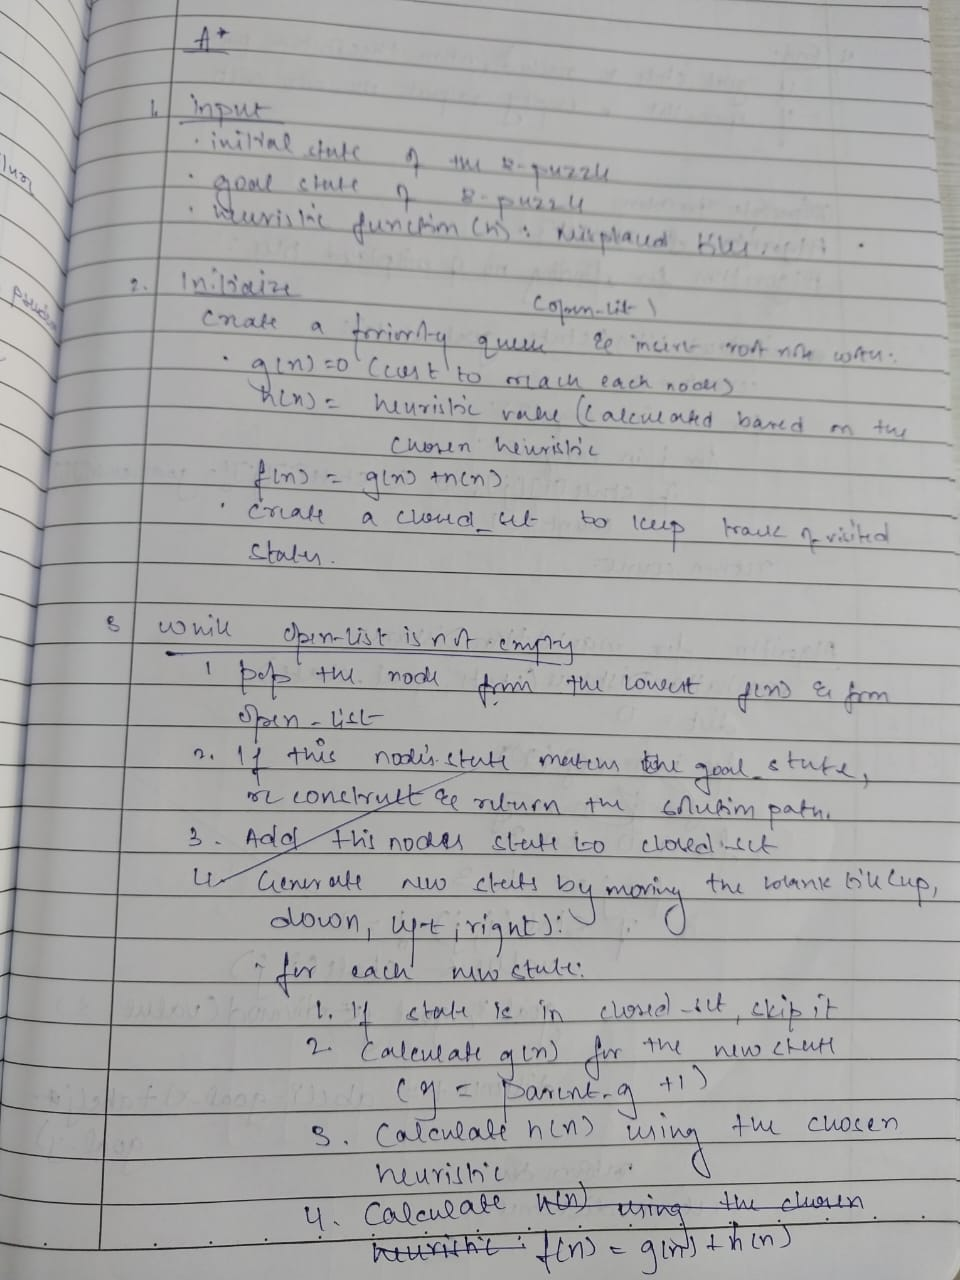 A*
1. input
· initial state of the 8-puzzle
· goal state of 8-puzzle
· heuristic function (h): misplaced tiles.
2. Initiaize
(open-list)
Create a priority queue & insert root node with:
· g(n)=0 (cost to reach each node)
h(n) = heuristic value (calculated based on the
chosen heuristic
f(n) = g(n) + h(n)
· Create a closed_set to keep track of visited
states.
3 While open-list is not empty
1 pop the node from the lowest f(n) & from
open-list
2. If this node's state matches the goal_state,
reconstruct & return the solution path.
3. Add this nodes state to closed-set
4. Generate new states by moving the blank tile (up,
down, left, right):
for each new state:
1. If state is in closed-set, skip it
2. Calculate g(n) for the new state
(g = parent.g +1)
3. Calculate h(n) using the chosen
heuristic
4. Calculate h(n) using the chosen
heuristic: f(n) = g(n) + h(n)